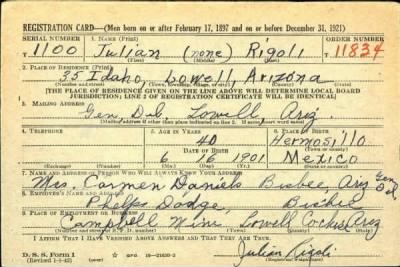 REGISTRATION CARD—(Men born on or after February 17, 1897 and on or before December 31, 1921)
SERIAL NUMBER 1. NAME (Print) ORDER NUMBER
T 1100 Julian (none) Rigoli 11834
(First) (Middle) (Last)
2. PLACE OF RESIDENCE (Print)
35 Idaho, Lowell, Arizona
(Number and street) (Town, township, village, or city) (County) (State)
[THE PLACE OF RESIDENCE GIVEN ON THE LINE ABOVE WILL DETERMINE LOCAL BOARD
JURISDICTION; LINE 2 OF REGISTRATION CERTIFICATE WILL BE IDENTICAL]
3. MAILING ADDRESS
Gen Del. Lowell, Ariz.
[Mailing address if other than place indicated on line 2. If same, insert word same]
4. TELEPHONE 5. AGE IN YEARS 6. PLACE OF BIRTH
40 Hermosillo
DATE OF BIRTH (Town or county)
6 16 1901 Mexico
(Exchange) (Number) (Mo.) (Day) (Yr.) (State or country)
7. NAME AND ADDRESS OF PERSON WHO WILL ALWAYS KNOW YOUR ADDRESS
Mrs. Carmen Daniels Bisbee, Ariz Gen Del
8. EMPLOYER'S NAME AND ADDRESS
Phelps Dodge, Bisbee
9. PLACE OF EMPLOYMENT OR BUSINESS
Campbell Mine Lowell Ariz
(Number and street or R. F. D. number) (Town) (County) (State)
I AFFIRM THAT I HAVE VERIFIED ABOVE ANSWERS AND THAT THEY ARE TRUE.
D. S. S. Form 1
(Revised 1-1-42) (over)
Julian Rigoli